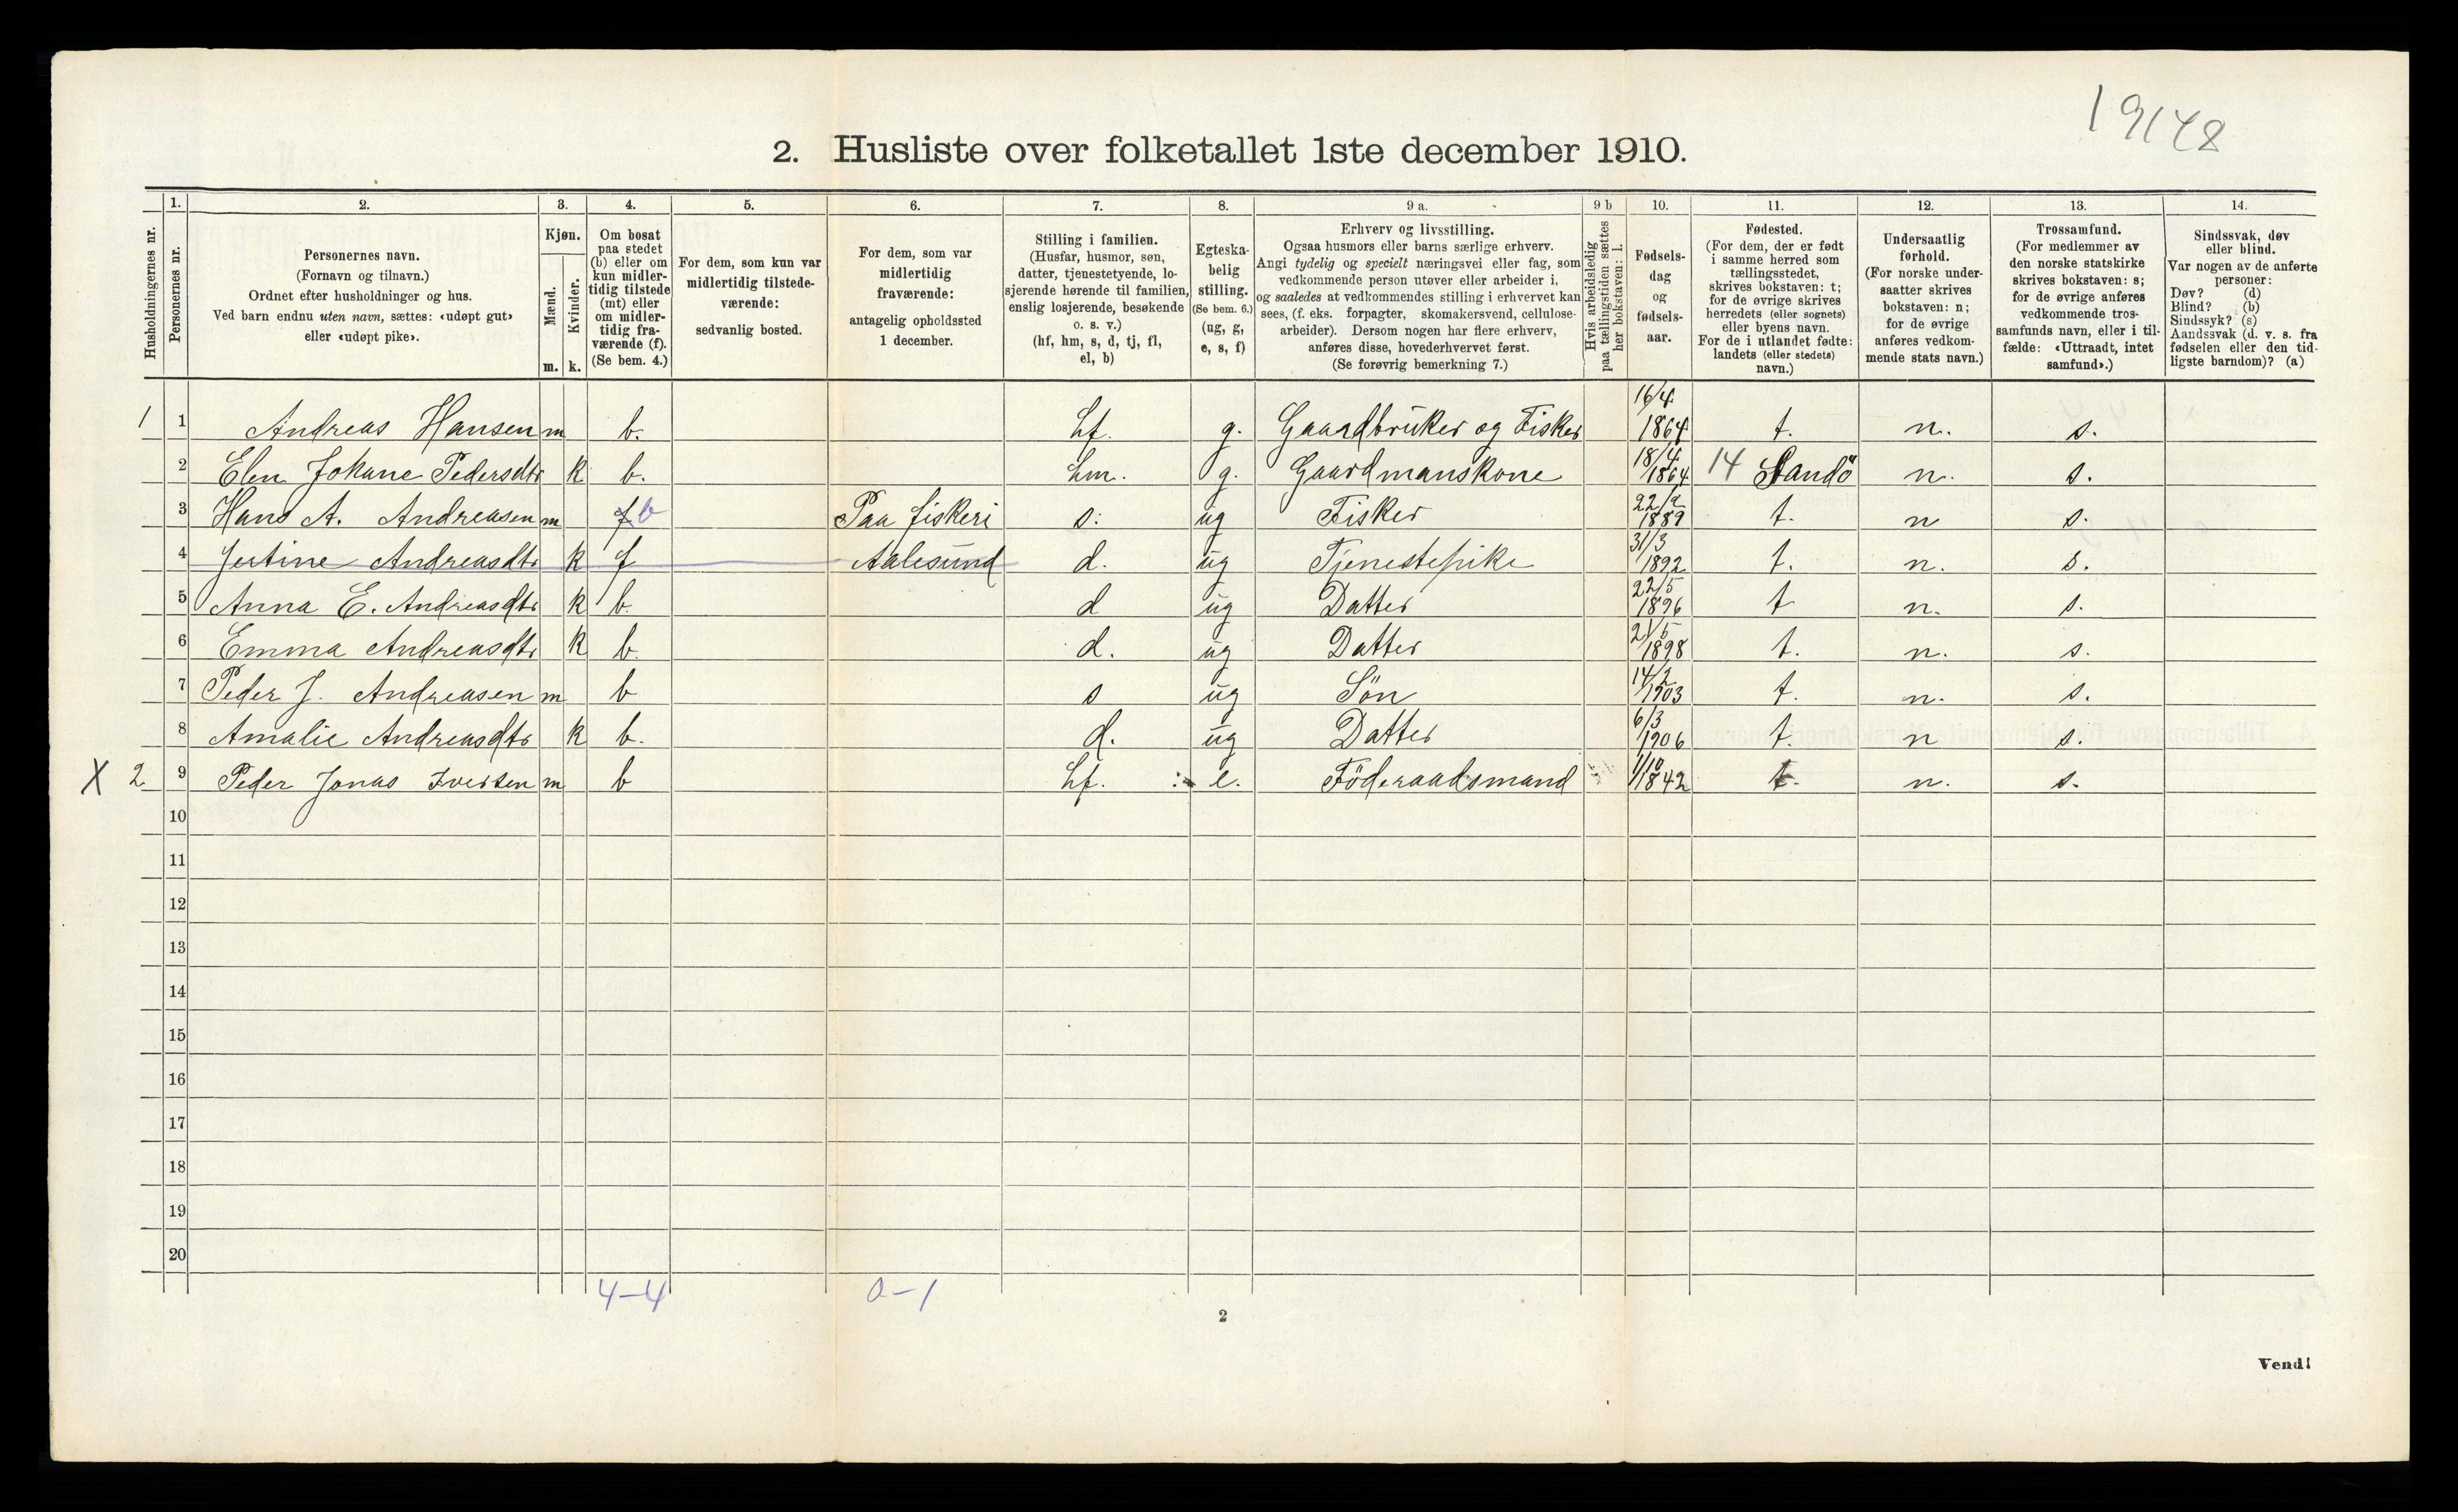 19148
2. Husliste over folketallet 1ste december 1910.
Husholdningernes nr.
1.
Personernes nr.
2.
Personernes navn.
(Fornavn og tilnavn.)
Ordnet efter husholdninger og hus.
Ved barn endnu uten navn, sættes: «udøpt gut»
eller «udøpt pike».
3.
Kjøn.
Mænd.
Kvinder.
m. k.
4.
Om bosat
paa stedet
(b) eller om
kun midler-
tidig tilstede
(mt) eller
om midler-
tidig fra-
værende (f).
(Se bem. 4.)
5.
For dem, som kun var
midlertidig tilstede-
værende:
sedvanlig bosted.
6.
For dem, som var
midlertidig
fraværende:
antagelig opholdssted
1 december.
7.
Stilling i familien.
(Husfar, husmor, søn,
datter, tjenestetyende, lo-
sjerende hørende til familien,
enslig losjerende, besøkende
o. s. v.)
(hf, hm, s, d, tj, fl,
el, b)
8.
Egteska-
belig
stilling.
(Se bem. 6.)
(ug, g,
e, s, f)
9 a.
Erhverv og livsstilling.
Ogsaa husmors eller barns særlige erhverv.
Angi tydelig og specielt næringsvei eller fag, som
vedkommende person utøver eller arbeider i,
og saaledes at vedkommendes stilling i erhvervet kan
sees, (f. eks. forpagter, skomakersvend, cellulose-
arbeider). Dersom nogen har flere erhverv,
anføres disse, hovederhvervet først.
(Se forøvrig bemerkning 7.)
9 b
Hvis arbeidsledig
paa tællingstiden sættes
her bokstaven: l.
10.
Fødsels-
dag
og
fødsels-
aar.
11.
Fødested.
(For dem, der er født
i samme herred som
tællingsstedet,
skrives bokstaven: t;
for de øvrige skrives
herredets (eller sognets)
eller byens navn.
For de i utlandet fødte:
landets (eller stedets)
navn.)
12.
Undersaatlig
forhold.
(For norske under-
saatter skrives
bokstaven: n;
for de øvrige
anføres vedkom-
mende stats navn.)
13.
Trossamfund.
(For medlemmer av
den norske statskirke
skrives bokstaven: s;
for de øvrige anføres
vedkommende tros-
samfunds navn, eller i til-
fælde: «Uttraadt, intet
samfund».)
14.
Sindssvak, døv
eller blind.
Var nogen av de anførte
personer:
Døv? (d)
Blind? (b)
Sindssyk? (s)
Aandssvak (d. v. s. fra
fødselen eller den tid-
ligste barndom)? (a)
1 1 Andreas Hansen m b. hf. g. Gaardbruker og Fisker 16/4 1864 t. n. s.
2 Elen Johane Pedersdtr k b. hm. g. Gaardmanskone 18/4 1864 14 Sandö n. s.
3 Hans A. Andreasen m f b Paa fiskeri s. ug Fisker 22/2 1889 t. n s.
4 Jertine Andreasdtr k f Aalesund d. ug Tjenestepike 31/3 1892 t. n. s.
5 Anna E. Andreasdtr k b. d ug Datter 22/5 1896 t n. s.
6 Emma Andreasdtr k b. d. ug Datter 21/5 1898 t. n. s.
7 Peder J. Andreasen m b s ug Sön 14/2 1903 t. n. s.
8 Amalie Andreasdtr k b. d. ug Datter 6/3 1906 t. n s.
X 2 9 Peder Jonas Iversen m b hf. e. Föderaadsmand 1/10 1842 t. n. s.
10
11
12
13
14
15
16
17
18
19
20
4-4 0-1
2
Vend!